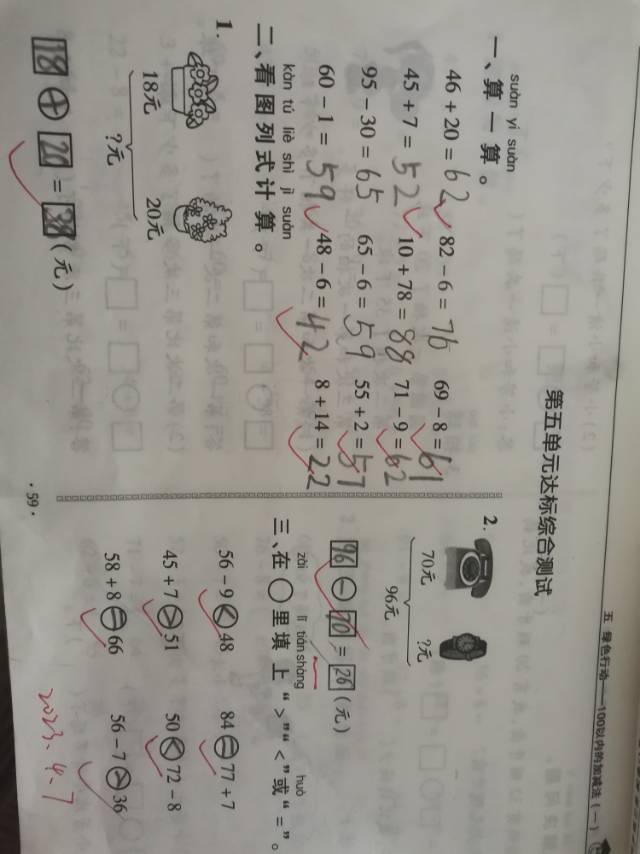 五 绿色行动——100以内的加减法(一)
第五单元达标综合测试
suàn yí suàn
一、算一算。
46+20=62 82-6=76 69-8=61
45+7=52 10+78=88 71-9=62
95-30=65 65-6=59 55+2=57
60-1=59 48-6=42 8+14=22
kàn tú liè shì jì suàn
二、看图列式计算。
1.
18元 20元
?元
18+20=38(元)
2.
70元 ?元
96元
96-70=26(元)
zài lǐ tián shàng huò
三、在○里填上“>”“<”或“=”。
56-9<48 84=77+7
45+7>51 50<72-8
58+8=66 56-7>36
2023.4.7
·59·